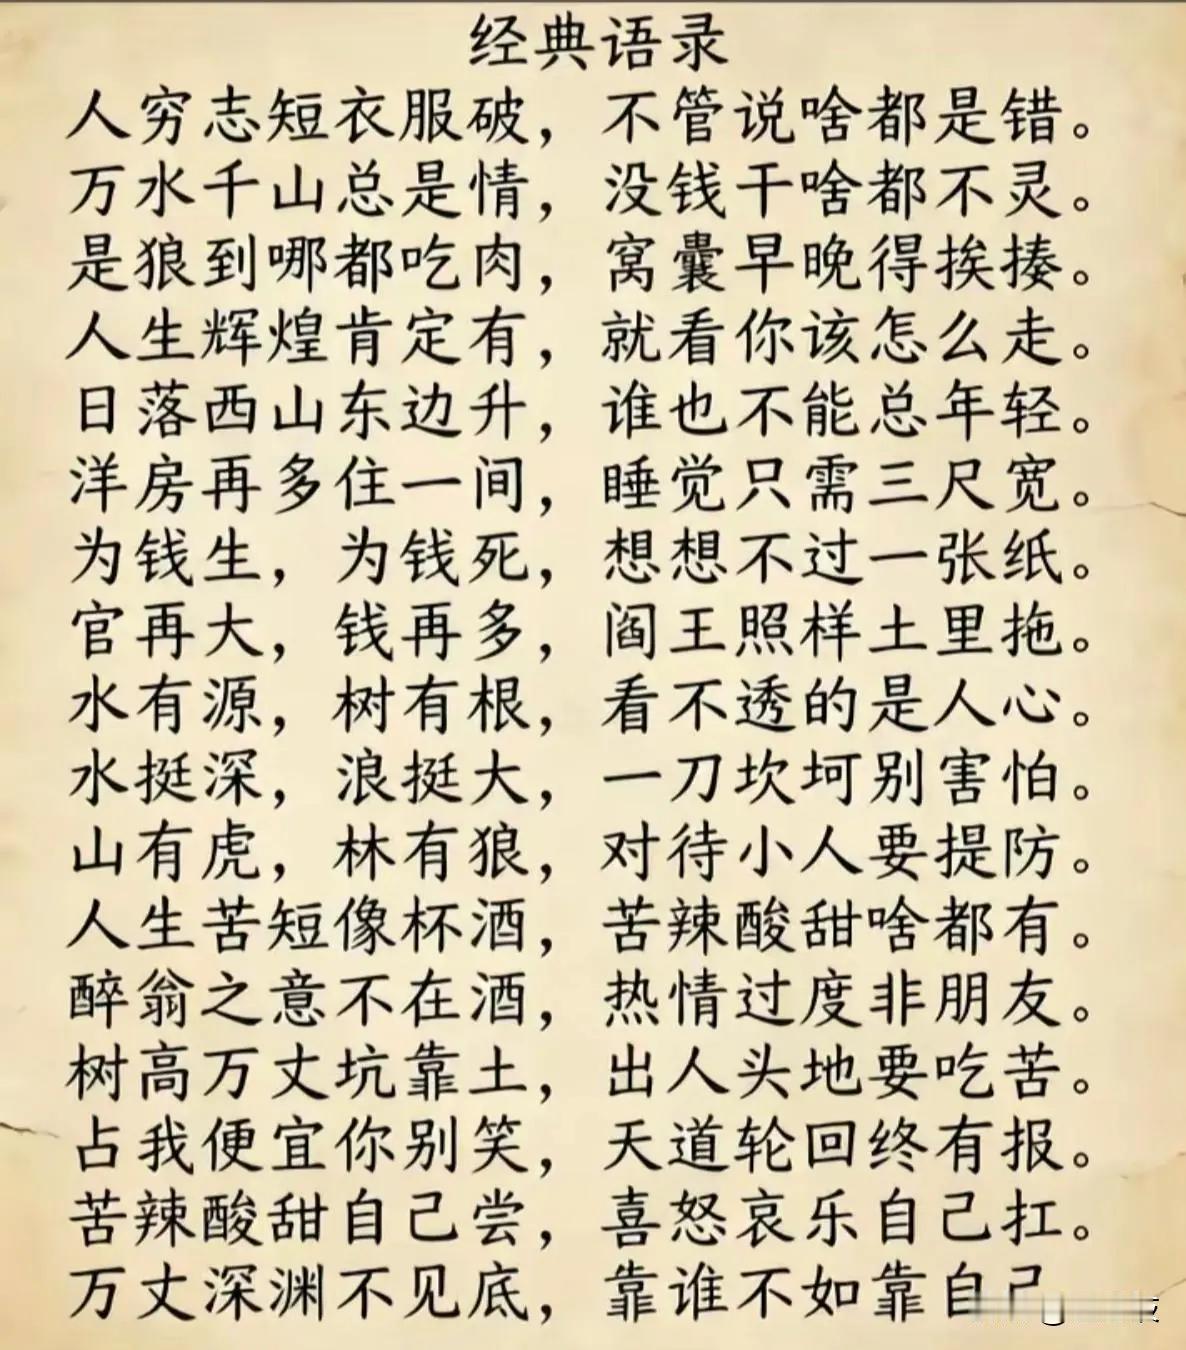 经典语录
人穷志短衣服破，不管说啥都是错。
万水千山总是情，没钱干啥都不灵。
是狼到哪都吃肉，窝囊早晚得挨揍。
人生辉煌肯定有，就看你该怎么走。
日落西山东边升，谁也不能总年轻。
洋房再多住一间，睡觉只需三尺宽。
为钱生，为钱死，想想不过一张纸。
官再大，钱再多，阎王照样土里拖。
水有源，树有根，看不透的是人心。
水挺深，浪挺大，一刀坎坷别害怕。
山有虎，林有狼，对待小人要提防。
人生苦短像杯酒，苦辣酸甜啥都有。
醉翁之意不在酒，热情过度非朋友。
树高万丈坑靠土，出人头地要吃苦。
占我便宜你别笑，天道轮回终有报。
苦辣酸甜自己尝，喜怒哀乐自己扛。
万丈深渊不见底，靠谁不如靠自己